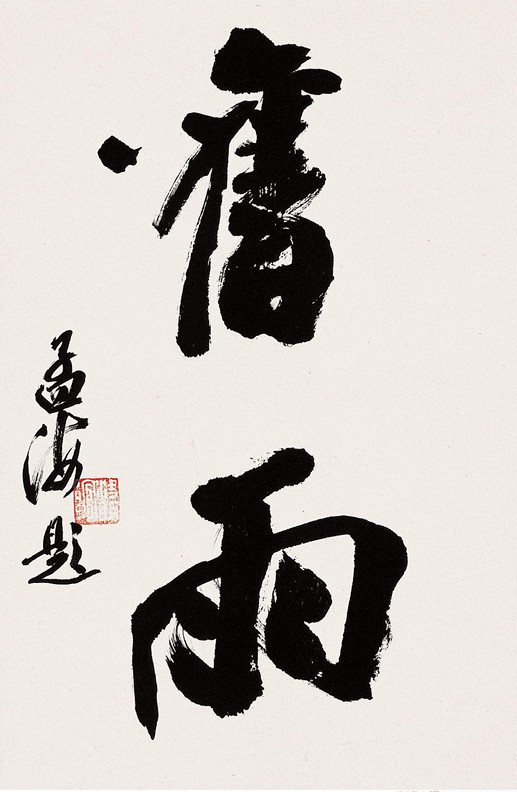 舊雨
孟海題